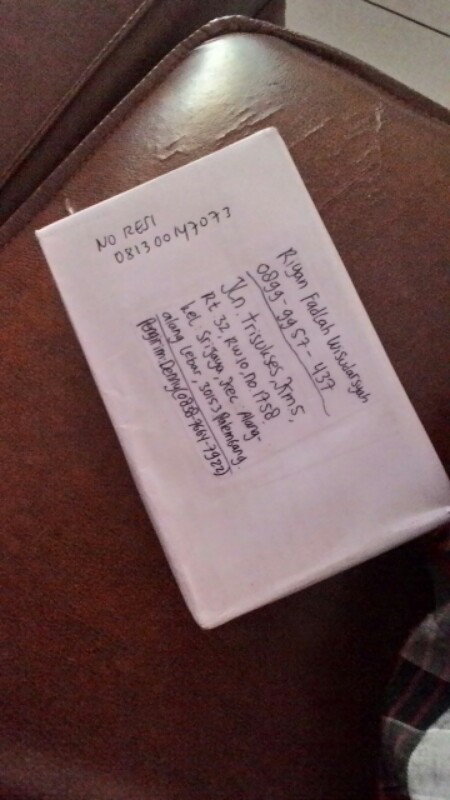 NO RESI
081300147073
Riyan Fadlah Wisudarsyah
0899-9957-437
Jln. trisukses, Km5,
Rt. 32, RW 10 no. 1758.
kel. Srijaya, Kec. Alang-
alang Lebar, 30153 Palembang.
Pengirim: Denny(0838-7664-7922)